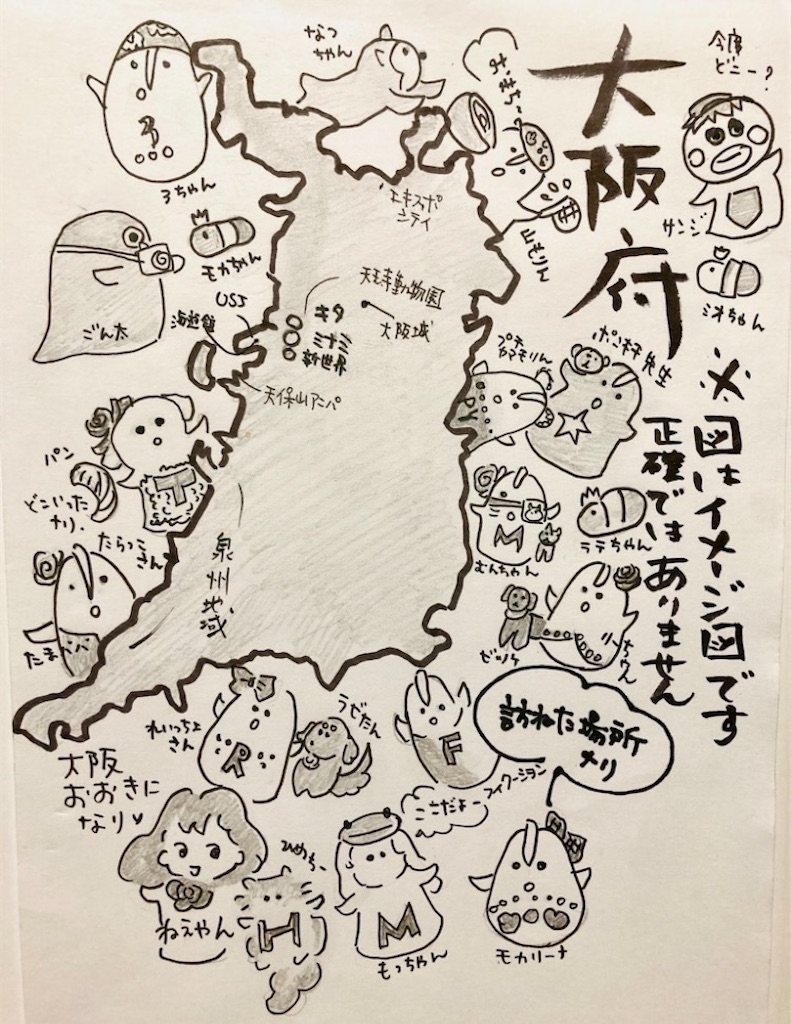 大阪府
※図はイメージ図です
正確ではありません
今度
どこー?
サンジ
ミオちゃん
なっ
ちゃん
おもち〜
山もりん
ろちゃん
モカちゃん
ごん太
エキスポ
シティ
天王寺動物園
USJ
海遊館
キタ
ミナミ
新世界
大阪城
天保山アニパ
泉州地域
プチ
ポン子先生
ラテちゃん
むんちゃん
M
T
パン
どこいった
ナリ.
たらっこ
さん
たまパパ
れいっちょ
さん
R
ラゼたん
F
フィクーション
訪ねた場所
ナリ
大阪
おおきに
なり♥
ここだよー
ひめちー
ねえやん
I
M
もっちゃん
モカリーナ